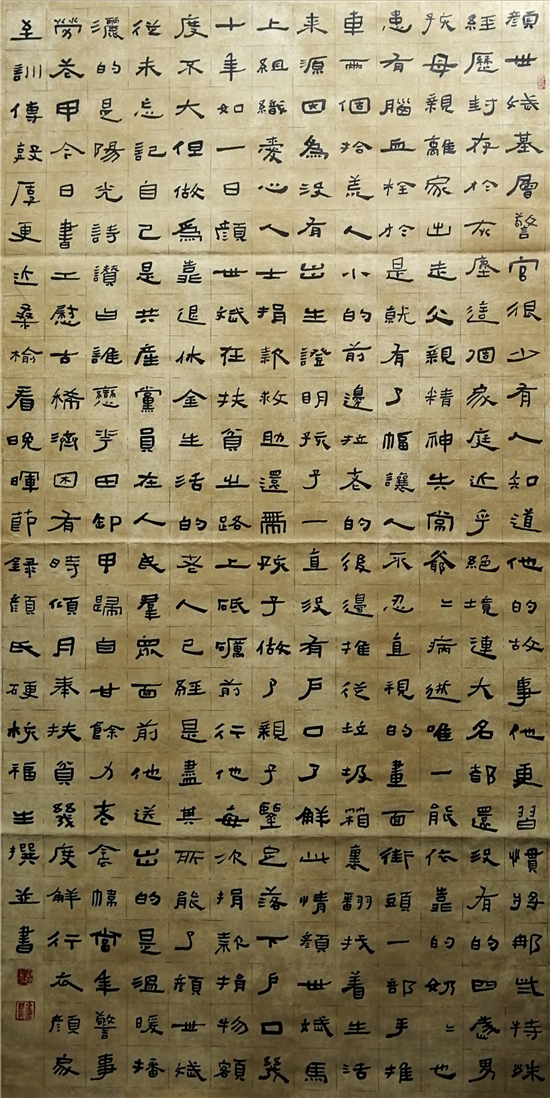 顏世斌基層警官很少有人知道他的故事他更習慣將那些特殊
經歷封存於灰塵這個家庭近乎絕境連大名都還沒有的四歲男
孩母親離家出走父親精神失常爺〻病逝唯一能依靠的奶〻也
患有腦血栓於是就有了幅讓人不忍直視的畫面街頭一部手推
車兩個拾荒人小的前邊拉老的後邊推從垃圾箱裏翻找着生活
來源因為沒有出生證明孩子一直沒有戶口了解此情顏世斌馬
上組織愛心人士捐款救助還需孩子做了親子鑒定落下戶口幾
十年如一日顏世斌在扶貧之路上砥礪前行他每次捐款捐物額
度不大但做為靠退休金生活的老人已經是盡其所能了顏世斌
從未忘記自己是共產黨員在人民羣眾面前他送出的是溫暖播
灑的是陽光詩讚曰誰戀平田卸甲歸自甘餘力老當年警事
勞甲今日書工慰古稀濟困有時傾月奉扶貧幾度解行衣顏家
至訓傳敦厚更近桑榆看晚暉節錄顏氏硬福生撰並書